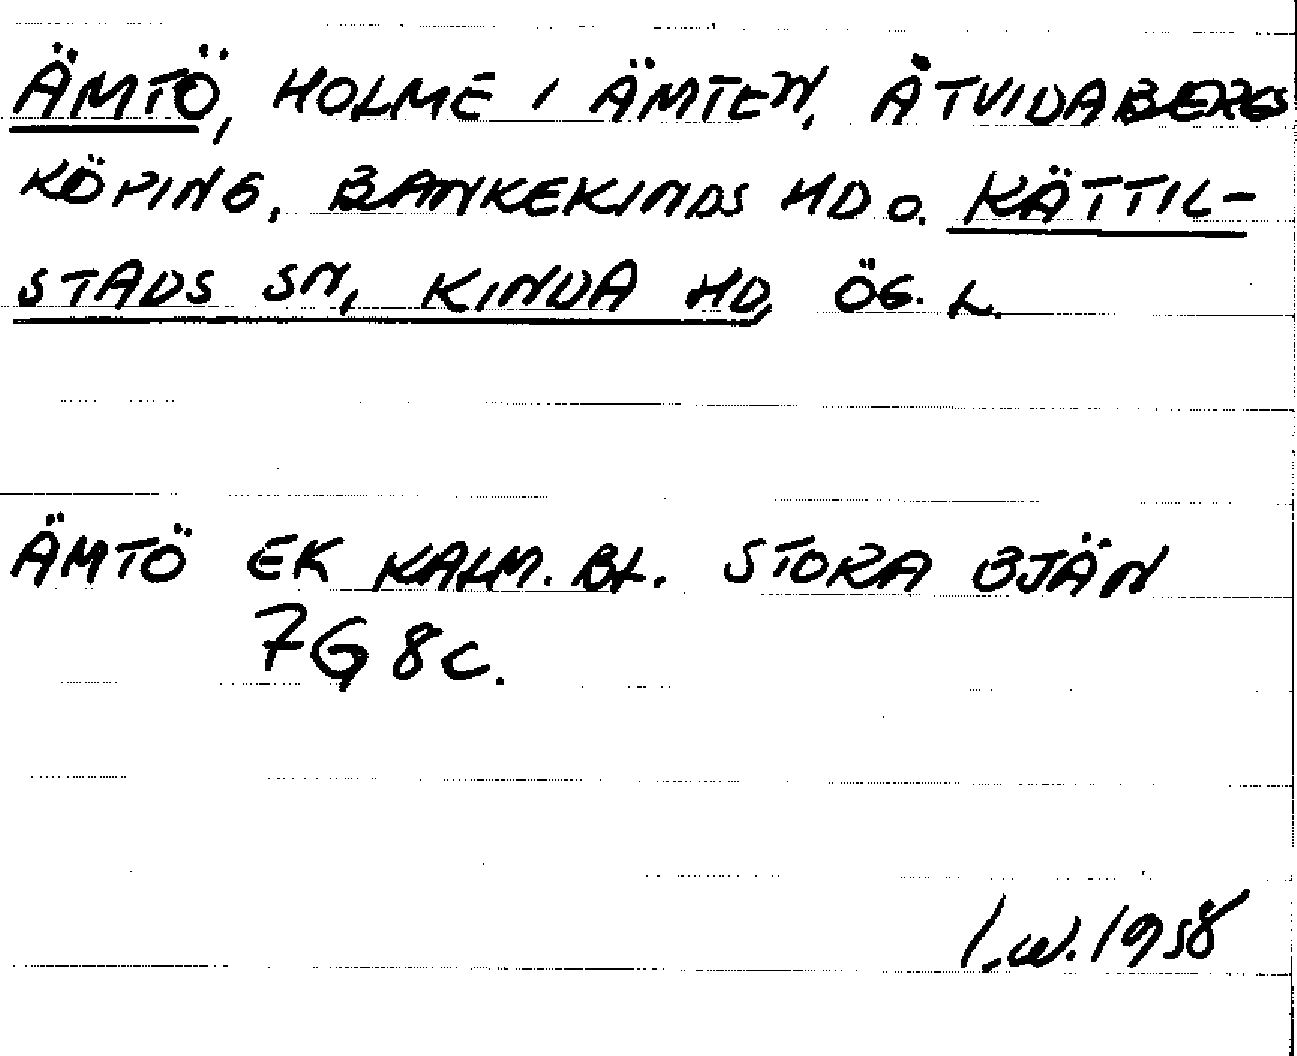 ÄMTÖ, HOLME I ÄMTEN, ÅTVIDABERGS
KÖPING, BANKEKINDS HD O. KÄTTIL-
STADS SN, KINDA HD, ÖG. L.
ÄMTÖ EK KALM. BL. STORA BJÄN
7G 8C.
I.W. 1958